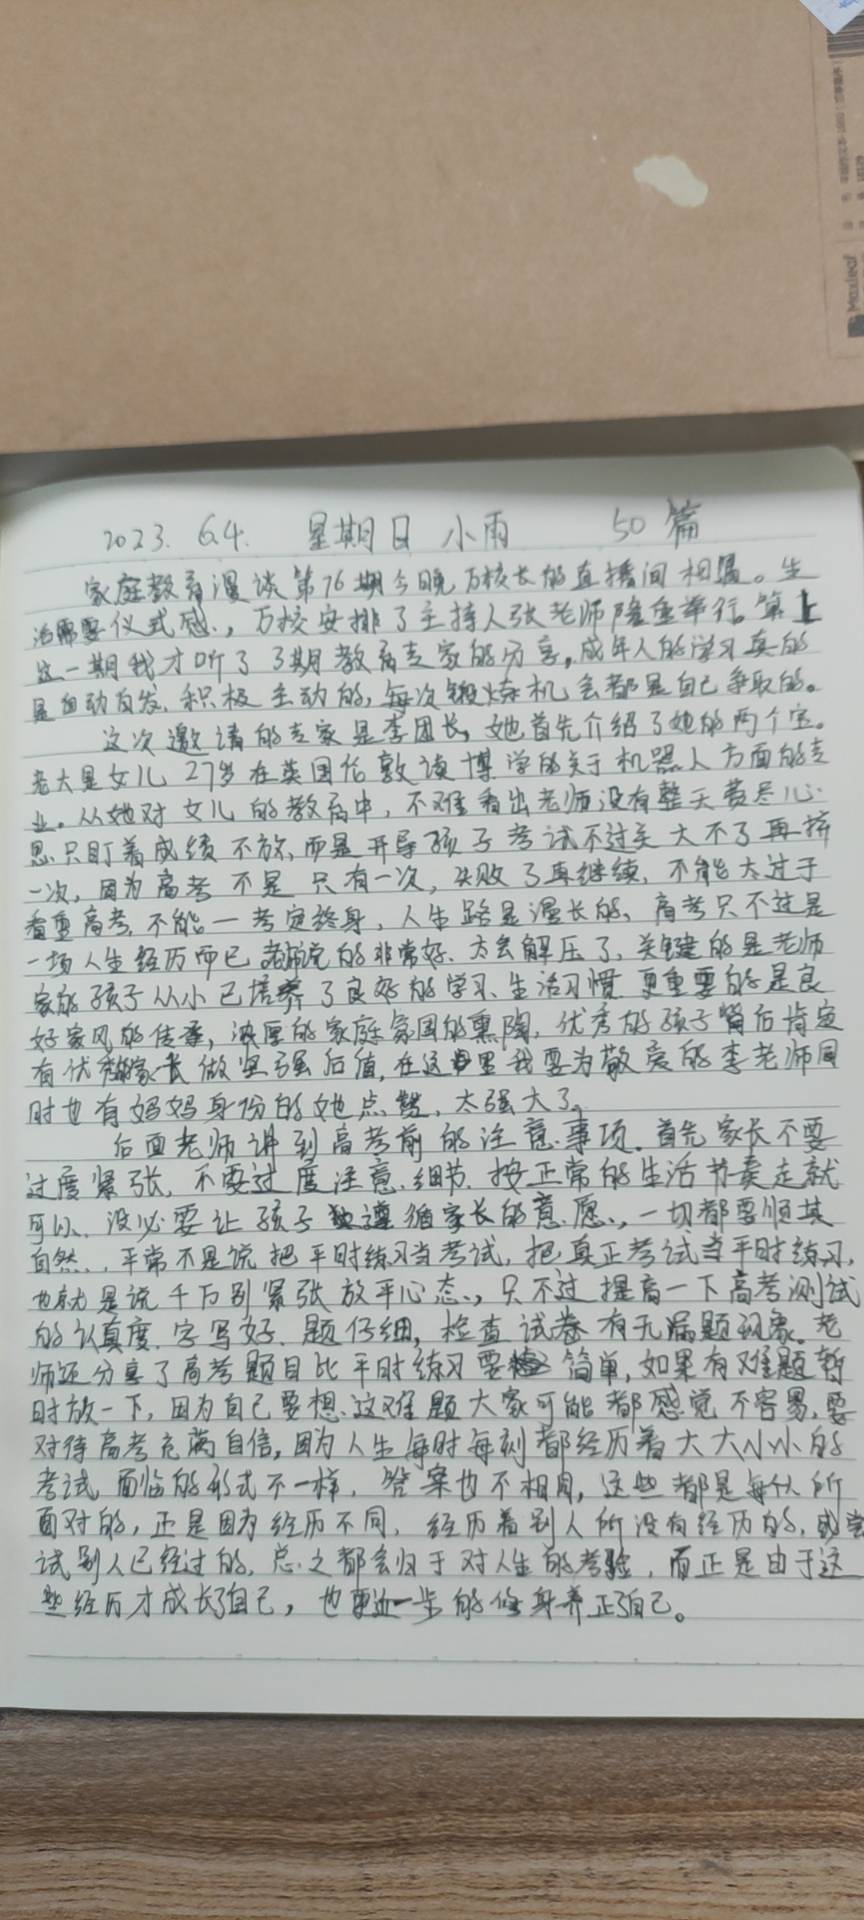 2023. 6.4. 星期日 小雨 50篇
家庭教育漫谈第76期今晚万校长的直播间相遇。生
活需要仪式感、,万校安排了主持人张老师隆重举行。算上
这一期我才听了3期教育专家的分享,成年人的学习真的
是自动自发、积极主动的,每次锻炼机会都是自己争取的。
这次邀请的专家是李团长,她首先介绍了她的两个宝。
老大是女儿27岁在英国伦敦读博学的关于机器人方面的专
业。从她对女儿的教育中,不难看出老师没有整天费尽心
思只盯着成绩不放、而是开导孩子考试不过关大不了再拚
一次,因为高考不是只有一次,失败了再继续,不能太过于
看重高考,不能一考定终身,人生路是漫长的,高考只不过是
一场人生经历而已 老师说的非常好、太会解压了、关键的是老师
家的孩子从小已培养了良好的学习、生活习惯 更重要的是良
好家风的传承,浓厚的家庭氛围的熏陶,优秀的孩子背后肯定
有优秀的家长做坚强后值,在这里我要为敬爱的李老师同
时也有妈妈身份的她点赞,太强大了。
后面老师讲到高考前的注意事项。首先家长不要
过度紧张,不要过度注意细节,按正常的生活节奏走就
可以、没必要让孩子遵循家长的意愿、,一切都要顺其
自然、,平常不是说把平时练习当考试,把真正考试当平时练习,
也就是说千万别紧张放平心态、,只不过提高一下高考测试
的认真度、字写好、题仔细,检查试卷有无漏题现象。老
师还分享了高考题目比平时练习要简单,如果有难题暂
时放一下,因为自己要想、这难题大家可能都感觉不容易,要
对待高考充满自信,因为人生每时每刻都经历着大大小小的
考试,面临的形式不一样,答案也不相同,这些都是每个人所
面对的,正是因为经历不同,经历着别人所没有经历的,或尝
试别人已经过的,总之都会归于对人生的考验,而正是由于这
些经历才成长了自己,也更近一步的修身养正了自己。
Maxleaf